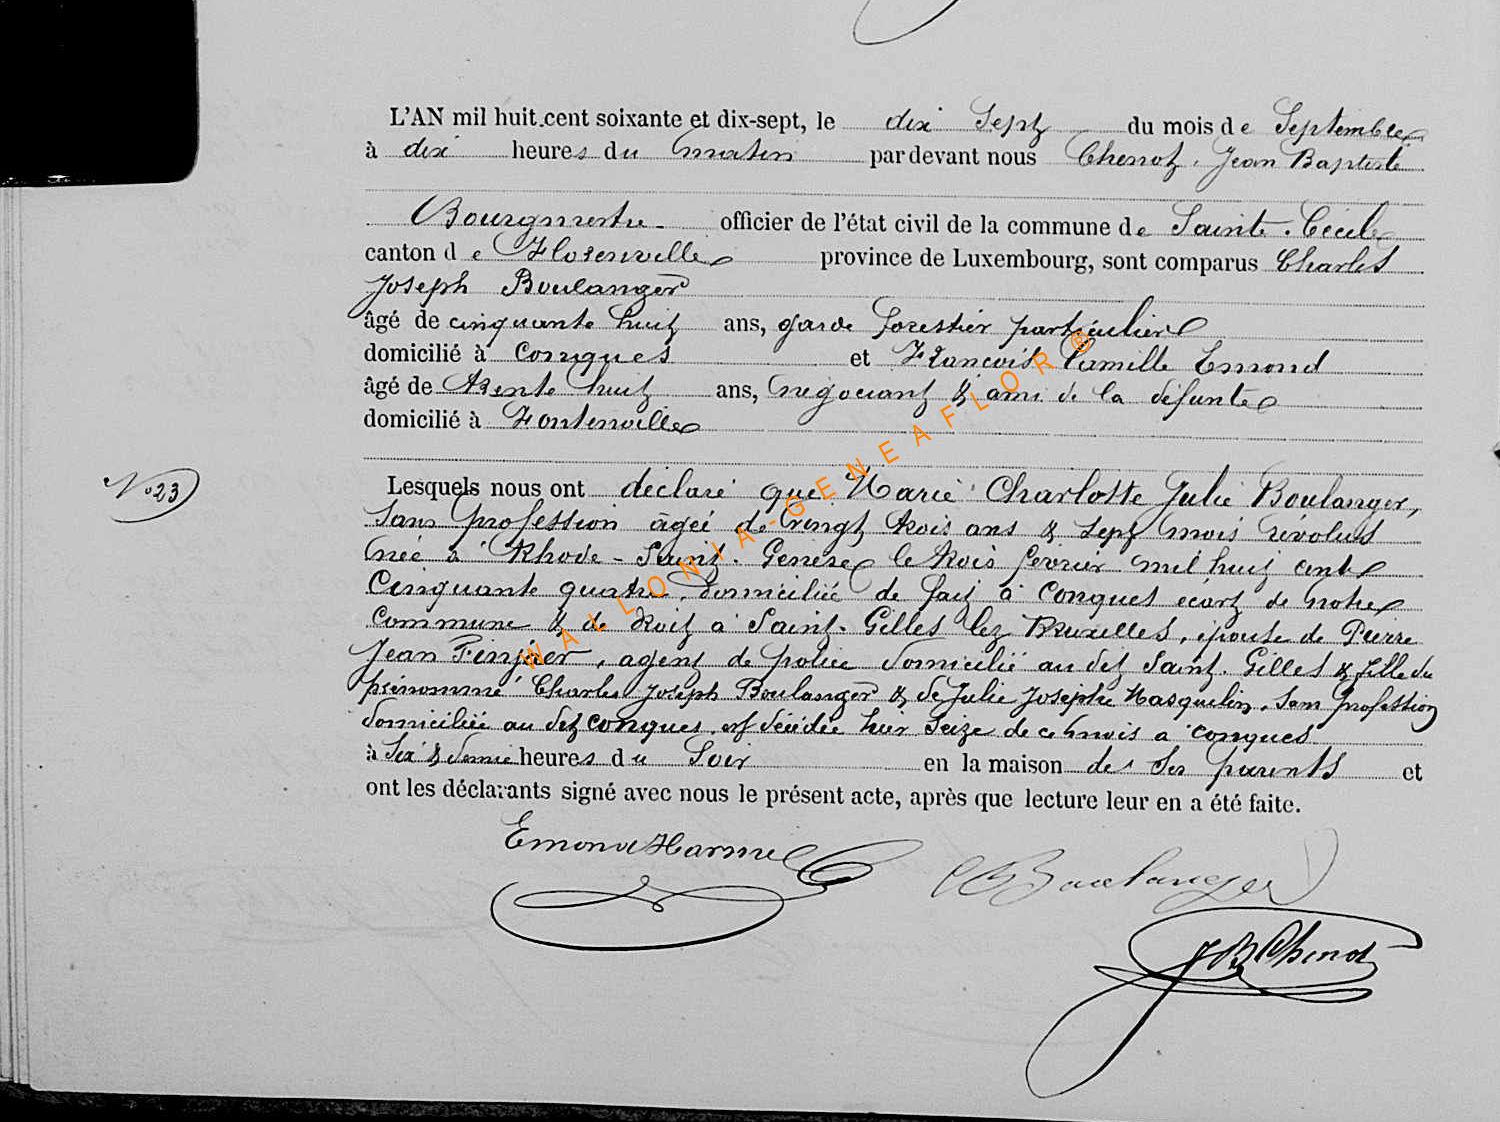 L'AN mil huit cent soixante et dix-sept, le dix Sept du mois de Septembre
à dix heures du matin par devant nous Chenot, Jean Baptiste
Bourgmestre officier de l'état civil de la commune de Sainte-Cécile
canton de Florenville province de Luxembourg, sont comparus Charles
Joseph Boulanger
âgé de cinquante huit ans, garde forestier particulier
domicilié à Conques et François Camille Emond
âgé de trente huit ans, négociant & ami de la défunte
domicilié à Fontenoille
N° 23
Lesquels nous ont déclaré que Marie Charlotte Julie Boulanger,
sans profession âgée de vingt trois ans & sept mois révolus
née à Rhode-Saint-Genèse le trois février mil huit cent
cinquante quatre, domiciliée de fait à Conques écart de notre
commune & de droit à Saint-Gilles lez Bruxelles, épouse de Pierre
Jean, agent de police domicilié au dit Saint-Gilles & fille du
prénommé Charles Joseph Boulanger & de Julie Josephe Masquelin, sans profession
domiciliée au dit Conques, est décédée hier seize de ce mois à Conques
à Six & demie heures du Soir en la maison de ses parents et
ont les déclarants signé avec nous le présent acte, après que lecture leur en a été faite.
Emond Harmel
Boulanger
JB Chenot
WALLONIA-GENEAFLOR ®